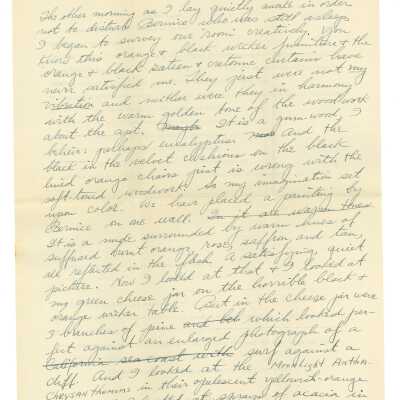 The other morning as I lay quietly awake in order
not to disturb Bernice who was still asleep,
I began to survey our room creatively. You
know this orange & black wicker furniture & the
orange & black sateen & cretonne curtains have
never satisfied me. They just were not my
vibration and neither were they in harmony
with the warm golden tone of the woodwork
about the apt. It is a gum wood, I
believe; perhaps eucalyptus. And the
black in the velvet cushions on the black
lined orange chairs just is wrong with the
soft-toned woodwork. So my imagination set
upon color. We have placed a painting by
Bernice on one wall. In it are warm tones
It is a nude surrounded by warm hues of
suffused burnt orange, rose, saffron, and tan,
all reflected in the flesh. A satisfying, quiet
picture. Now I looked at that & I looked at
my green cheese jar on the horrible black &
orange wicker table. But in the cheese jar were
3 branches of pine and beh which looked per-
fect against an enlarged photograph of a
California sea coast with surf against a
cliff. And I looked at the Moonlight Antha-
Chrysanthemums in their opulescent yellowish-orange
at sprays of acacia in